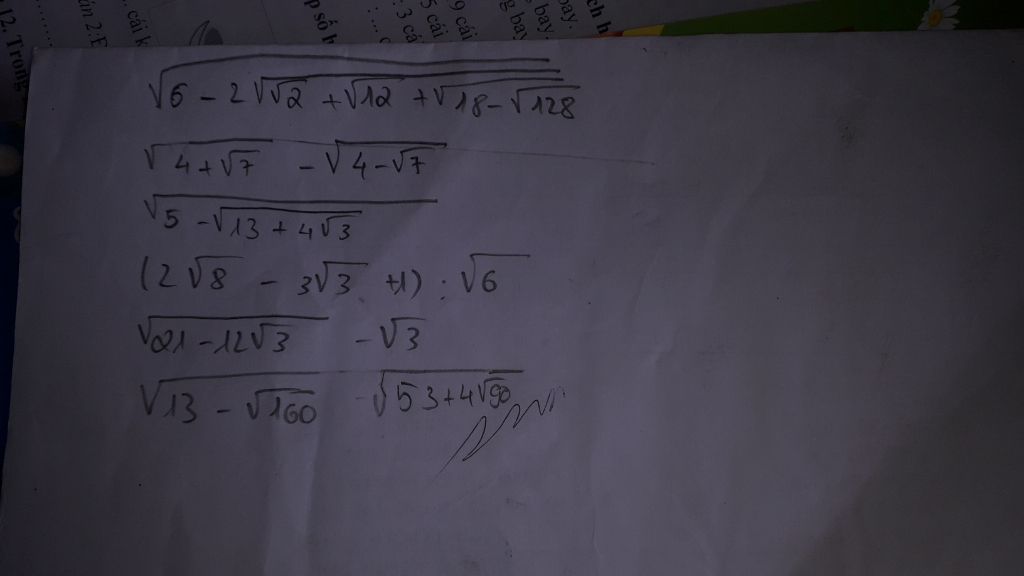 12. Trong
cái k
p số h
3 cá
5 cái
9 cái
bay.
bay.
ch h
√(6 - 2√(√2 + √12 + √(18 - √128)))
√(4 + √7) - √(4 - √7)
√(5 - √(13 + 4√3))
(2√8 - 3√3 + 1) : √6
√(21 - 12√3) - √3
√(13 - √160) - √(53 + 4√90)